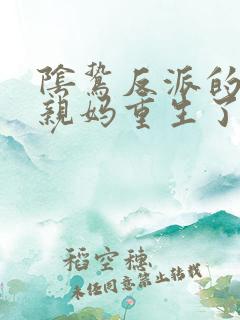 陰鷙反派的
親媽重生了
稻空穗
未任同意禁止转载